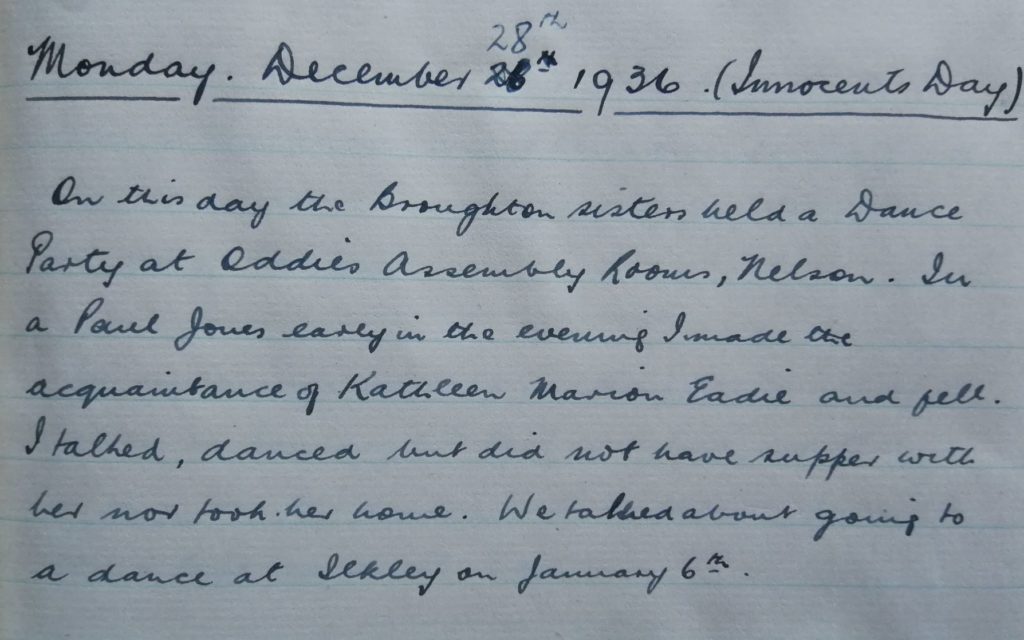 28th
Monday. December 26th 1936. (Innocents Day)
On this day the Broughton sisters held a Dance
Party at Oddies Assembly Rooms, Nelson. In
a Paul Jones early in the evening I made the
acquaintance of Kathleen Marion Eadie and fell.
I talked, danced but did not have supper with
her nor took her home. We talked about going to
a dance at Ilkley on January 6th.